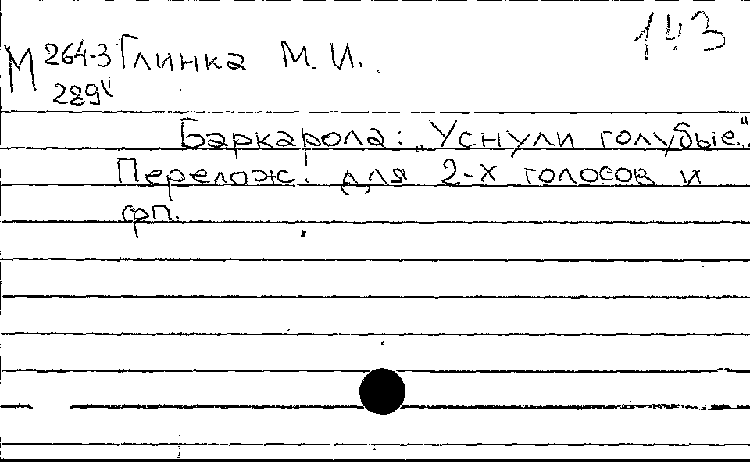 143
М 264-3 Глинка М. И.
289
Баркарола: „Уснули голубые".
Перелож. для 2-х голосов и
фп.